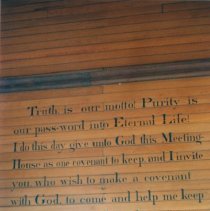 Truth is our motto! Purity is
our pass-word into Eternal Life!
I do this day give unto God this Meeting-
House as one covenant to keep, and I invite
you who wish to make a covenant
with God, to come and help me keep